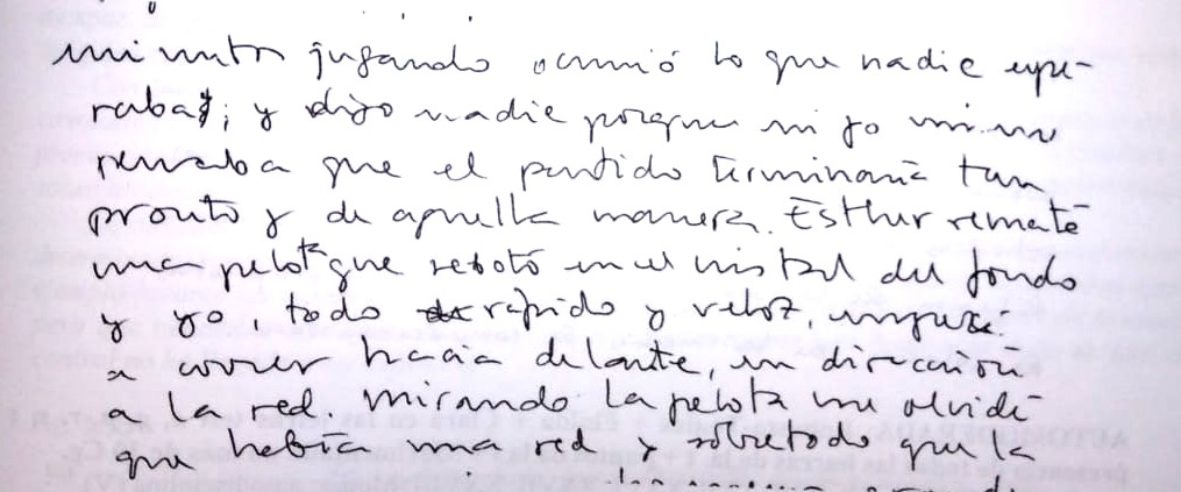 minutos jugando ocurrió lo que nadie espe-
raba; y digo nadie porque ni yo misma
pensaba que el partido terminaría tan
pronto y de aquella manera. Esther remató
una pelota que rebotó en el cristal del fondo
y yo, todo rápido y veloz, empecé
a correr hacia delante, en dirección
a la red mirando la pelota me olvidé
que había una red y sobretodo que la